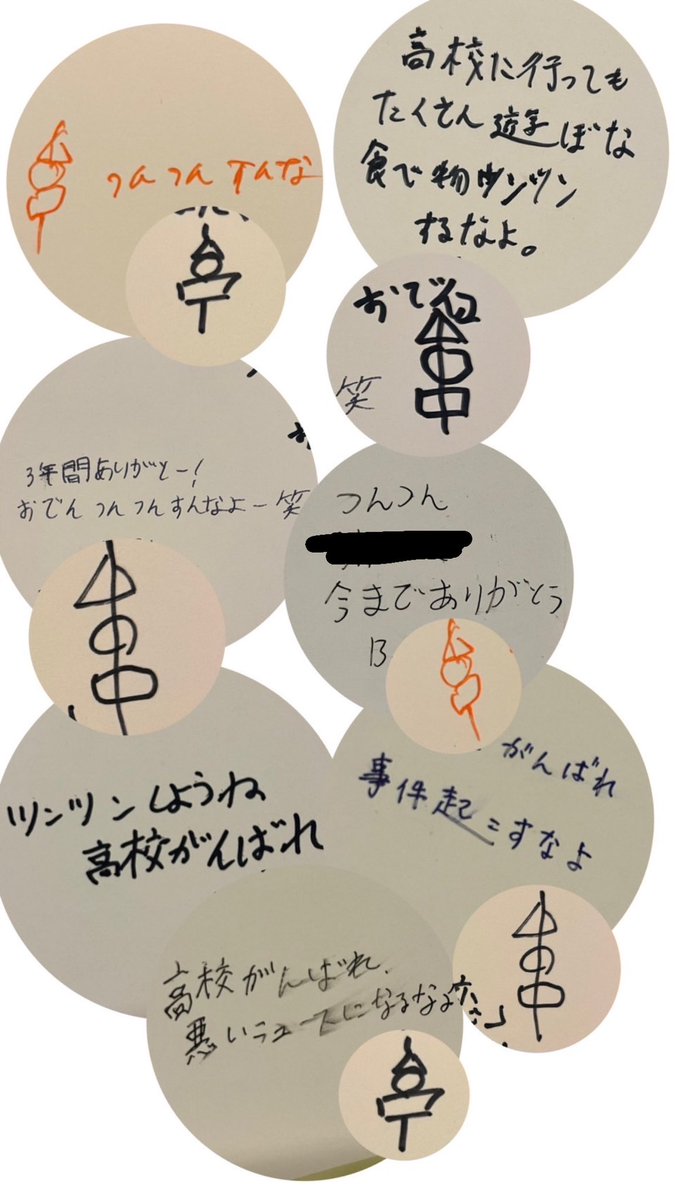 つんつんすんな
高校た行っても
たくさん遊ぼな
食で物ツンツン
するなよ。
おでん
笑
3年間ありがとー!
おでんつんつんすんなよー笑
つんつん
今までありがとう
B
ツンツンしようね
高校がんばれ
がんばれ
事件起こすなよ
高校がんばれ、
悪いニュースになるなよ